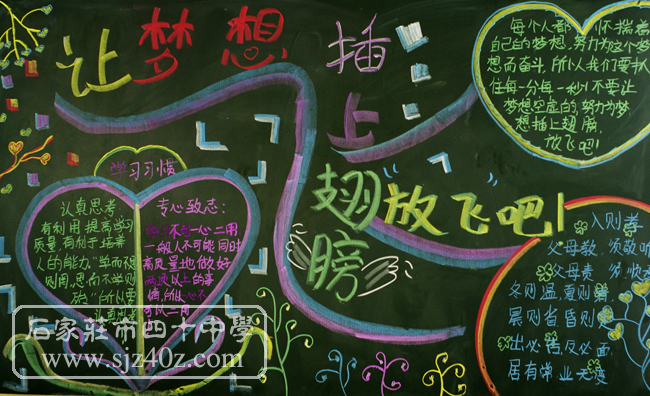 让梦想
插上
翅膀
放飞吧!
每个人都怀揣着
自己的梦想,努力为这个梦
想而奋斗,所以我们要抓
住每一分每一秒!不要让
梦想空虚的,努力为梦
想插上翅膀,
放飞吧!
学习习惯
认真思考:
有利用提高学习
质量,有利于培养
人的能力。"学而不思
则罔,思而不学则
殆。"所以要
专心致志:
一心二用,
一般人不可能同时
高质量地做好
两项以上的事
情,所以一心不
可以二用
入则孝
父母教,须敬听
父母责,须顺承
冬则温,夏则凊
晨则省,昏则定
出必告,反必面
居有常,业无变
石家莊市四十中學
www.sjz40z.com